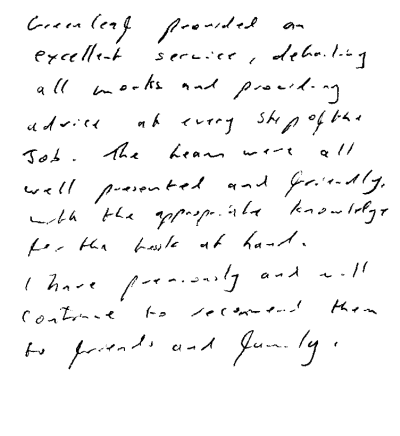 Greenleaf provided an
excellent service, detailing
all works and providing
advice at every step of the
Job. The team were all
well presented and friendly,
with the appropriate knowledge
for the task at hand.
I have previously and will
continue to recommend them
to friends and family.